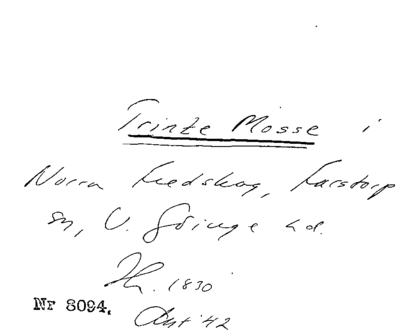 Trinte Mosse i
Norra Hedskog, Farstorp
sn, V. Göinge hd.
1830
Nr 8094. '42